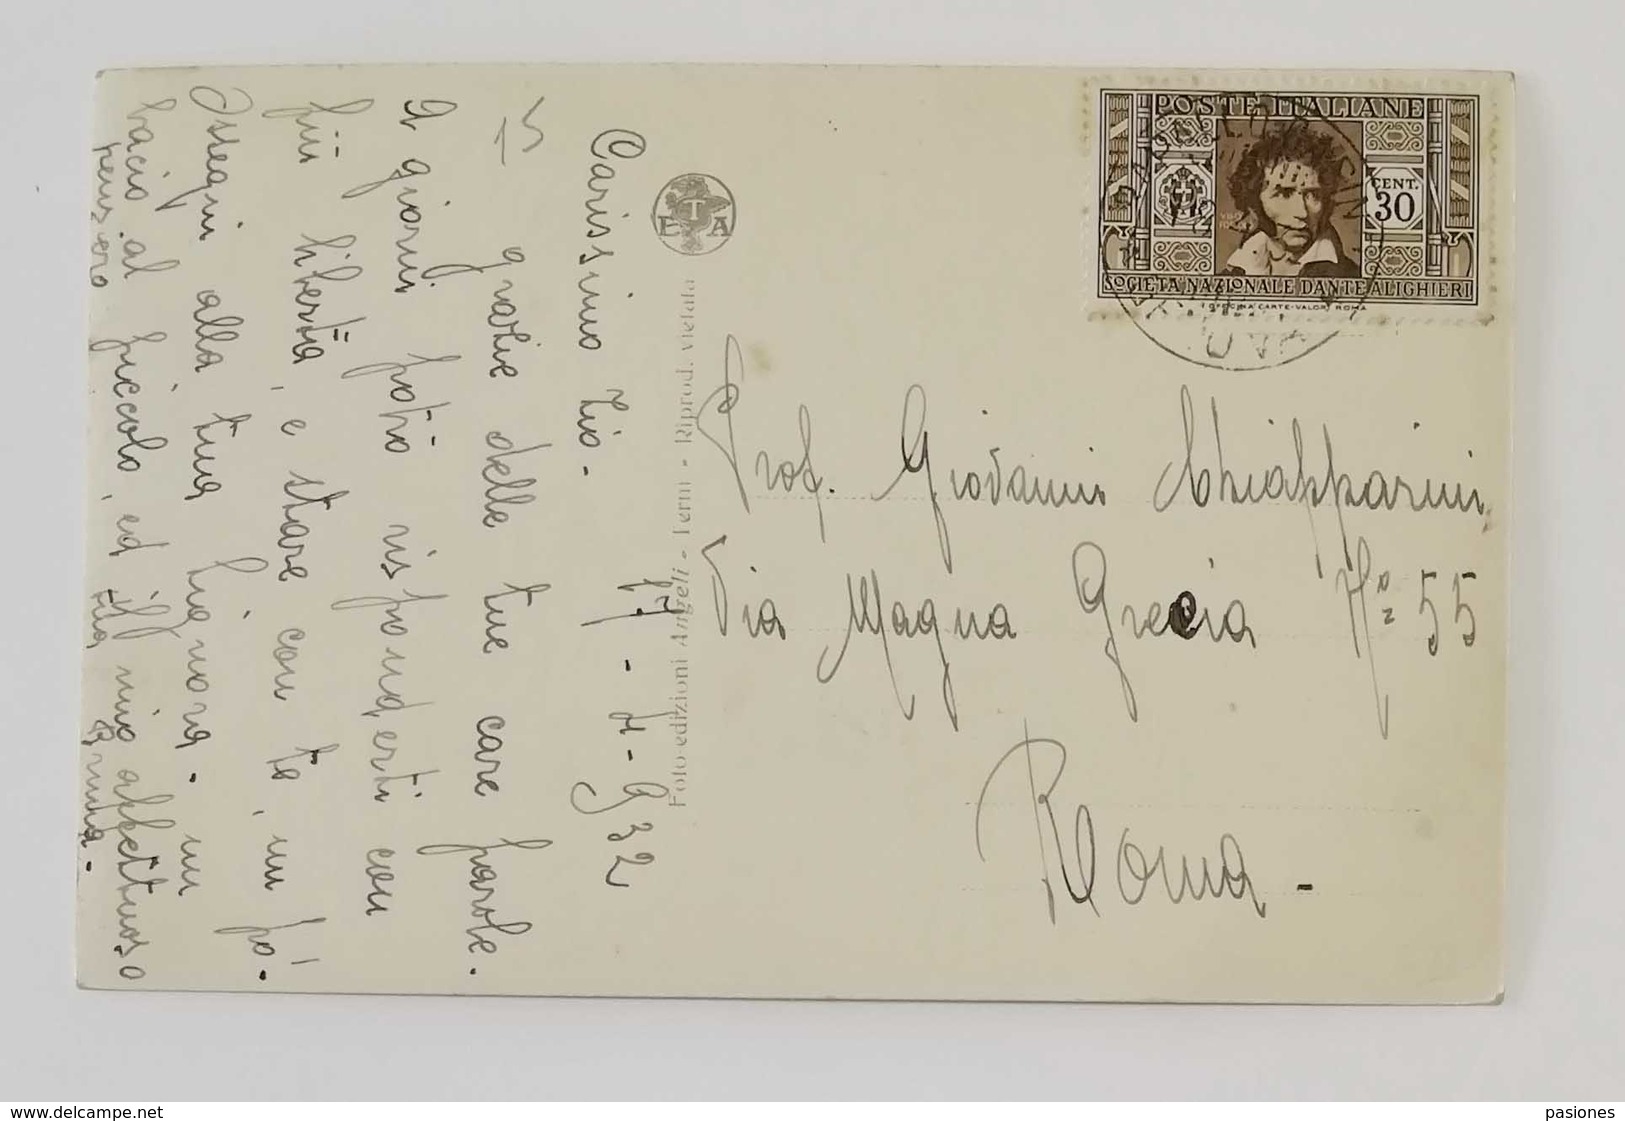 17-4-932
Carissimo Zio.
grazie delle tue care parole.
A giorni potrò risponderti con
più libertà, e stare con te, un po'.
Ossequi alla tua Signora. un
bacio al piccolo, ed il mio affettuoso
pensiero
tua
15
E T A
Foto-edizioni Angeli - Terni - Riprod. vietata
POSTE ITALIANE
CENT.
30
VGO
FOSCOLO
SOCIETA NAZIONALE DANTE ALIGHIERI
OFFICINA CARTE-VALORI ROMA
Prof. Giovanni Chiapparini
Via Magna Grecia No 55
Roma-
www.delcampe.net
pasiones